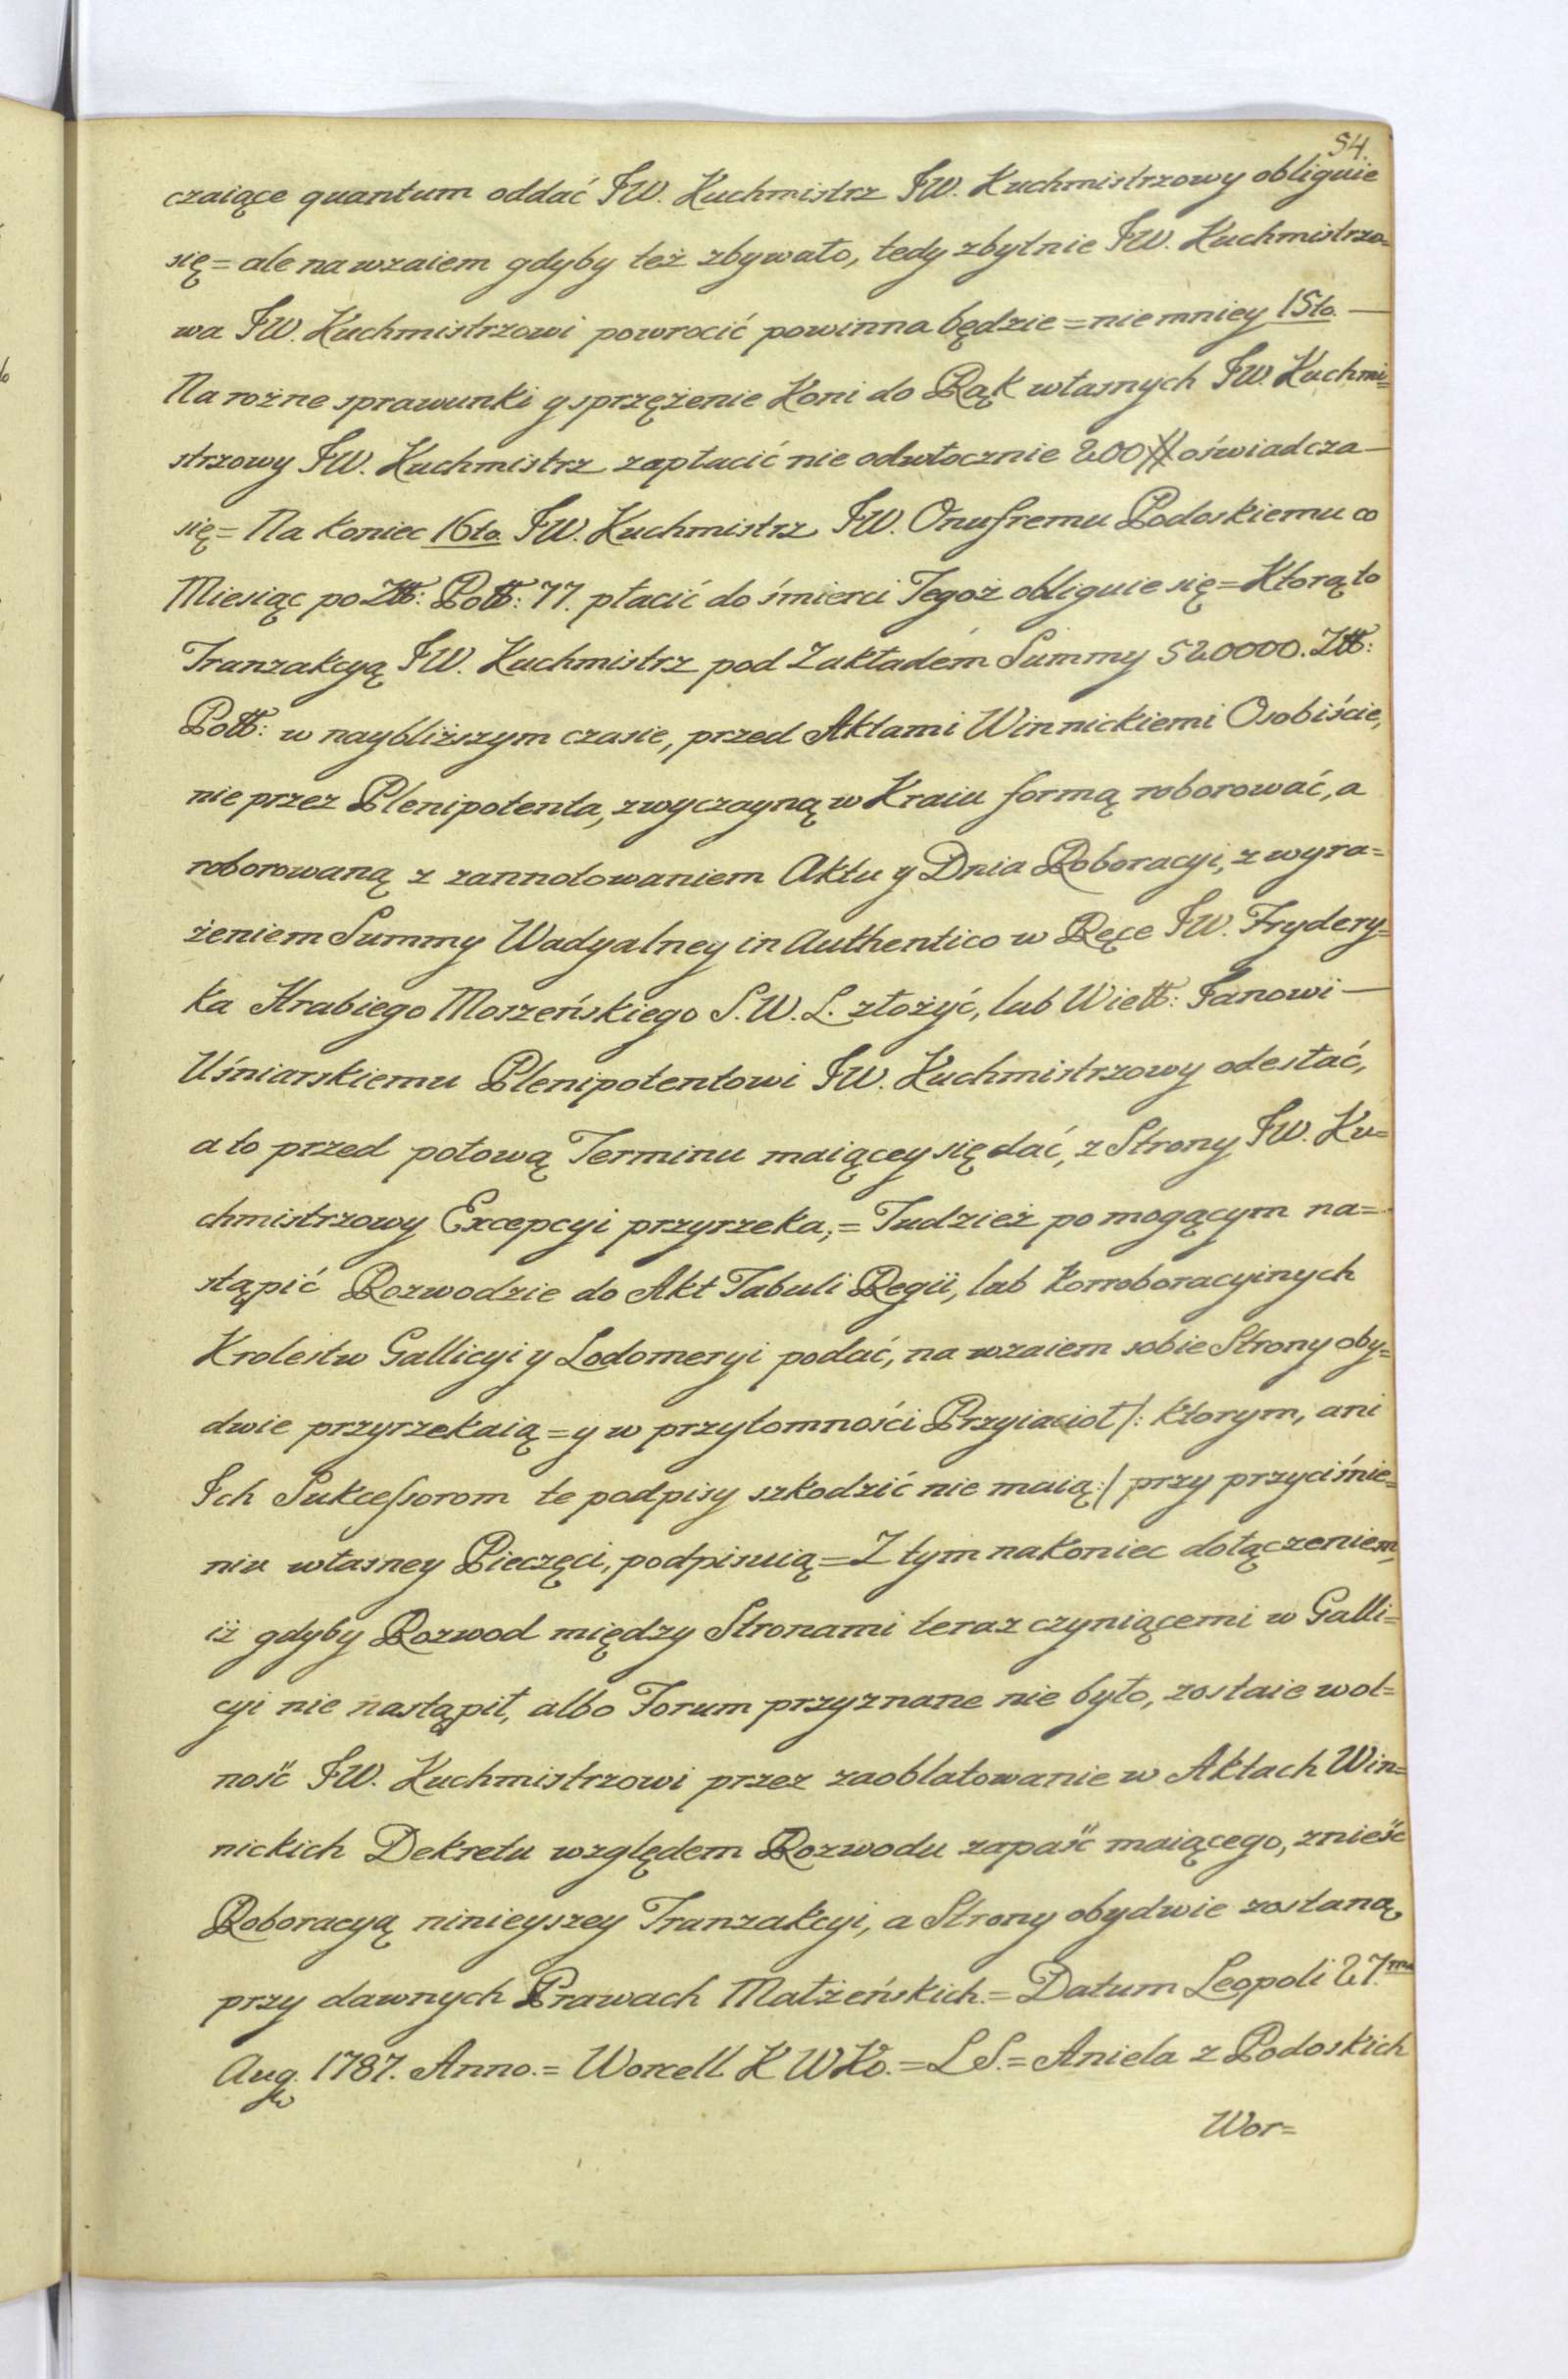 54.
czaiące quantum oddać JW. Kuchmistrz JW. Kuchmistrzowy obliguie
się = ale na wzaiem gdyby też zbywało, tedy zbytnie JW. Kuchmistrzo=
wa JW. Kuchmistrzowi powrocić powinna będzie = niemniey 15to. —
Na rożne sprawunki y sprzężenie Koni do Rąk własnych JW. Kuchmi=
strzowy JW. Kuchmistrz zapłacić nie odwłocznie 200 # oświadcza —
się = Na koniec 16to. JW. Kuchmistrz JW. Onufremu Podoskiemu co
Miesiąc po Złł: Poll: 77. płacić do śmierci Tegoż obliguie się = Ktorą to
Tranzakcyą JW. Kuchmistrz pod Zakładem Summy 520000. Złł:
Poll: w naybliższym czasie, przed Aktami Winnickiemi Osobiście,
nie przez Plenipotenta, zwyczayną w Kraiu formą roborować, a
roborowaną z zannotowaniem Aktu y Dnia Roboracyi, z wyra=
żeniem Summy Wadyalney in Authentico w Ręce JW. Frydery=
ka Hrabiego Moszeńskiego S. W. L. złożyć, lub Wiell: Janowi —
Uśniarskiemu Plenipotentowi JW. Kuchmistrzowy odesłać,
a to przed połową Terminu maiącey się dać, z Strony JW. Ku=
chmistrzowy Excepcyi przyrzeka, = Tudzież po mogącym na=
stąpić Rozwodzie do Akt Tabuli Regii, lub Korroboracyinych
Krolestw Gallicyi y Lodomeryi podać, na wzaiem sobie Strony oby=
dwie przyrzekaią = y w przytomności Przyiacioł /: ktorym, ani
Ich Sukcessorom te podpisy szkodzić nie maią :/ przy przyciśnie=
niu własney Pieczęci, podpisuią = Z tym nakoniec dołączeniem,
iż gdyby Rozwod między Stronami teraz czyniącemi w Galli=
cyi nie nastąpił, albo Forum przyznane nie było, zostaie wol=
ność JW. Kuchmistrzowi przez zaoblatowanie w Aktach Win=
nickich Dekretu względem Rozwodu zapaść maiącego, znieść
Roboracyą ninieyszey Tranzakcyi, a Strony obydwie zostaną
przy dawnych Prawach Małżeńskich. = Datum Leopoli 27.ma
Aug. 1787. Anno. = Worcell K W Ko. = L S. = Aniela z Podoskich
Wor=